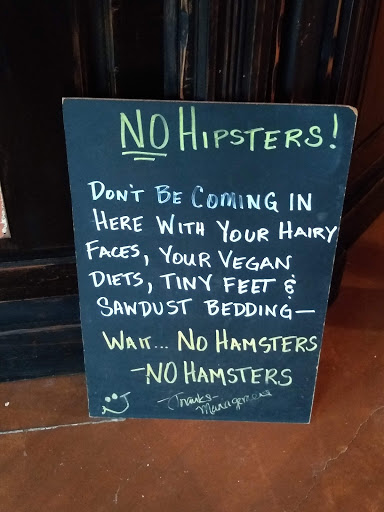 NO HIPSTERS!
DON'T BE COMING IN
HERE WITH YOUR HAIRY
FACES, YOUR VEGAN
DIETS, TINY FEET &
SAWDUST BEDDING—
WAIT... NO HAMSTERS
-NO HAMSTERS
Thanks-
Management